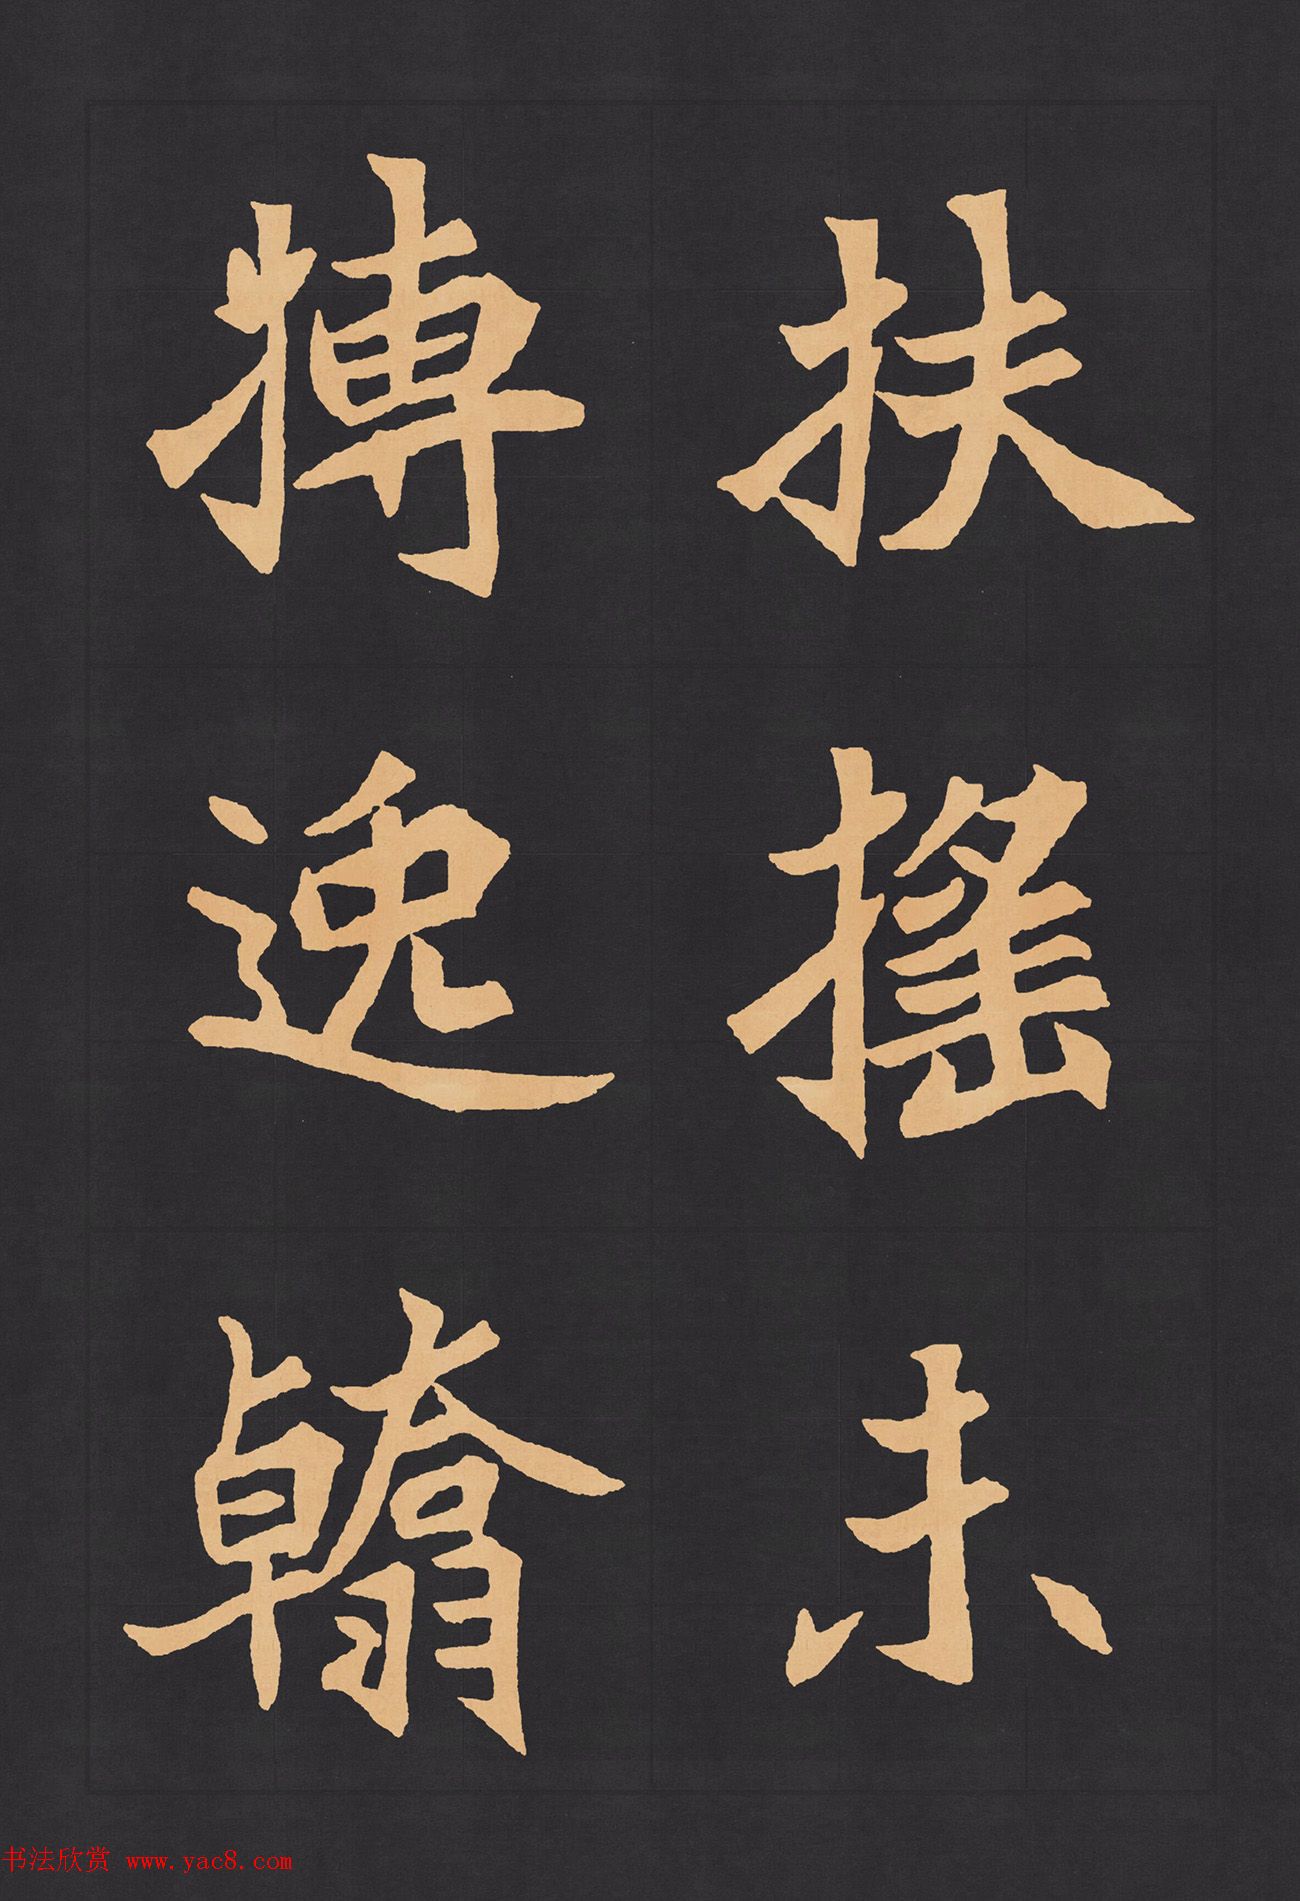 扶摇未
搏逸翰
书法欣赏 www.yac8.com